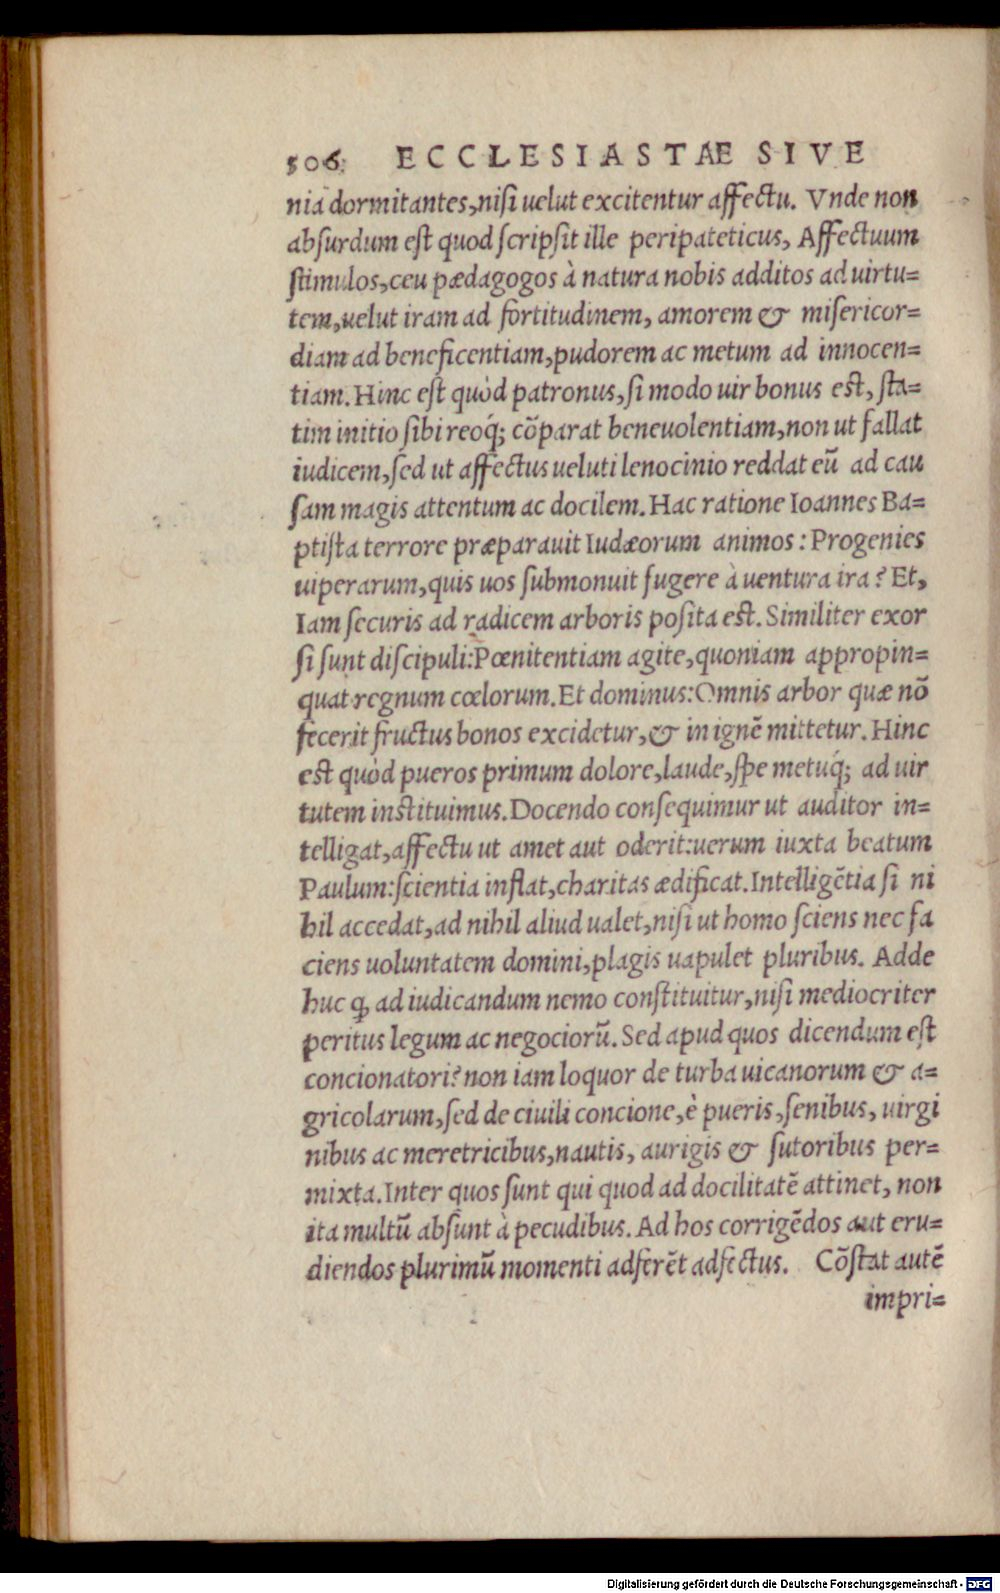 506 ECCLESIASTAE SIVE
nia dormitantes, nisi uelut excitentur affectu. Vnde non
absurdum est quod scripsit ille peripateticus, Affectuum
stimulos, ceu pædagogos à natura nobis additos ad uirtu=
tem, uelut iram ad fortitudinem, amorem & misericor=
diam ad beneficentiam, pudorem ac metum ad innocen=
tiam. Hinc est quòd patronus, si modo uir bonus est, sta=
tim initio sibi reoq́; cōparat beneuolentiam, non ut fallat
iudicem, sed ut affectus ueluti lenocinio reddat eū ad cau
sam magis attentum ac docilem. Hac ratione Ioannes Ba=
ptista terrore præparauit Iudæorum animos: Progenies
uiperarum, quis uos submonuit fugere à uentura ira? Et,
Iam securis ad radicem arboris posita est. Similiter exor
si sunt discipuli: Pœnitentiam agite, quoniam appropin=
quat regnum cœlorum. Et dominus: Omnis arbor quæ nō
fecerit fructus bonos excidetur, & in ignē mittetur. Hinc
est quòd pueros primum dolore, laude, spe metuq́; ad uir
tutem instituimus. Docendo consequimur ut auditor in=
telligat, affectu ut amet aut oderit: uerum iuxta beatum
Paulum: scientia inflat, charitas ædificat. Intelligētia si ni
hil accedat, ad nihil aliud ualet, nisi ut homo sciens nec fa
ciens uoluntatem domini, plagis uapulet pluribus. Adde
huc ꝙ ad iudicandum nemo constituitur, nisi mediocriter
peritus legum ac negociorū. Sed apud quos dicendum est
concionatori? non iam loquor de turba uicanorum & a=
gricolarum, sed de ciuili concione, è pueris, senibus, uirgi
nibus ac meretricibus, nautis, aurigis & sutoribus per=
mixta. Inter quos sunt qui quod ad docilitatē attinet, non
ita multū absunt à pecudibus. Ad hos corrigēdos aut eru=
diendos plurimū momenti adferēt adfectus. Cōstat autē
impri=
Digitalisierung gefördert durch die Deutsche Forschungsgemeinschaft - DFG